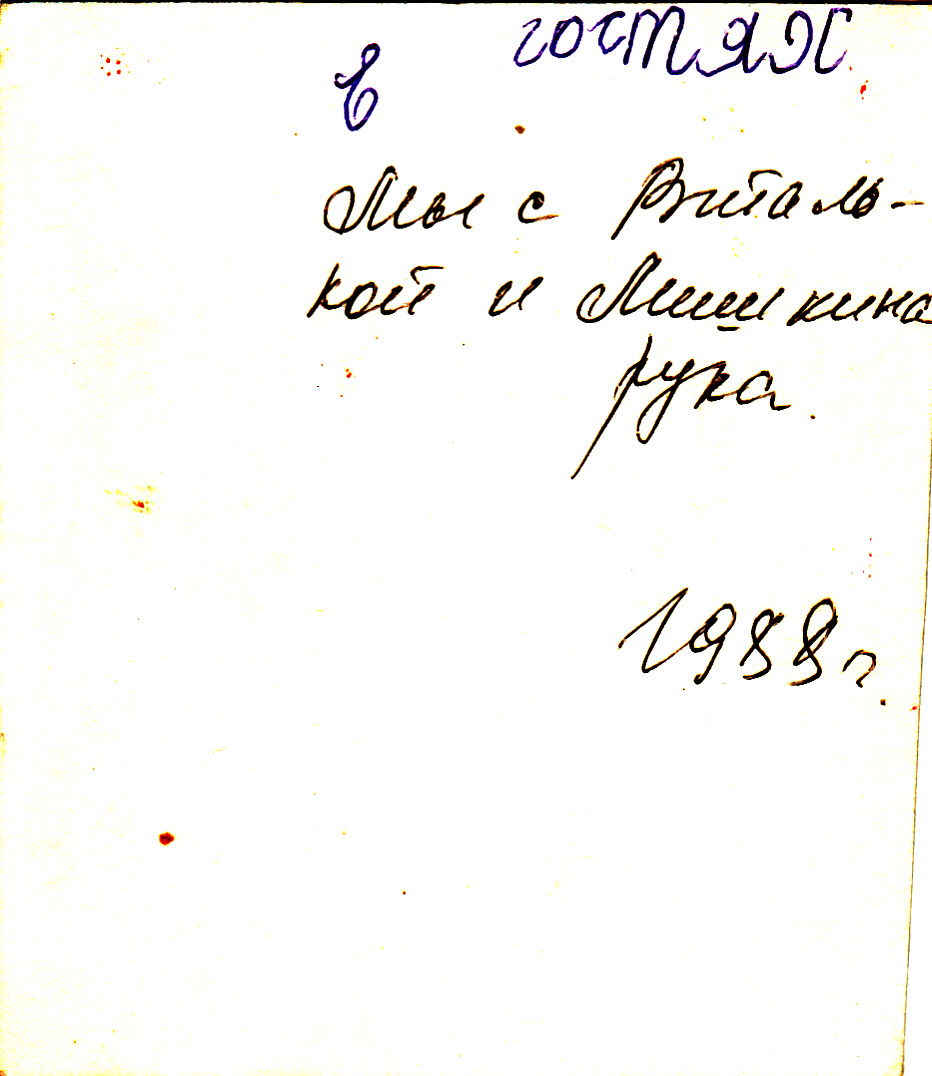 в гостях
Мы с Виталь-
кой и Мишкина
рука.
1988 г.